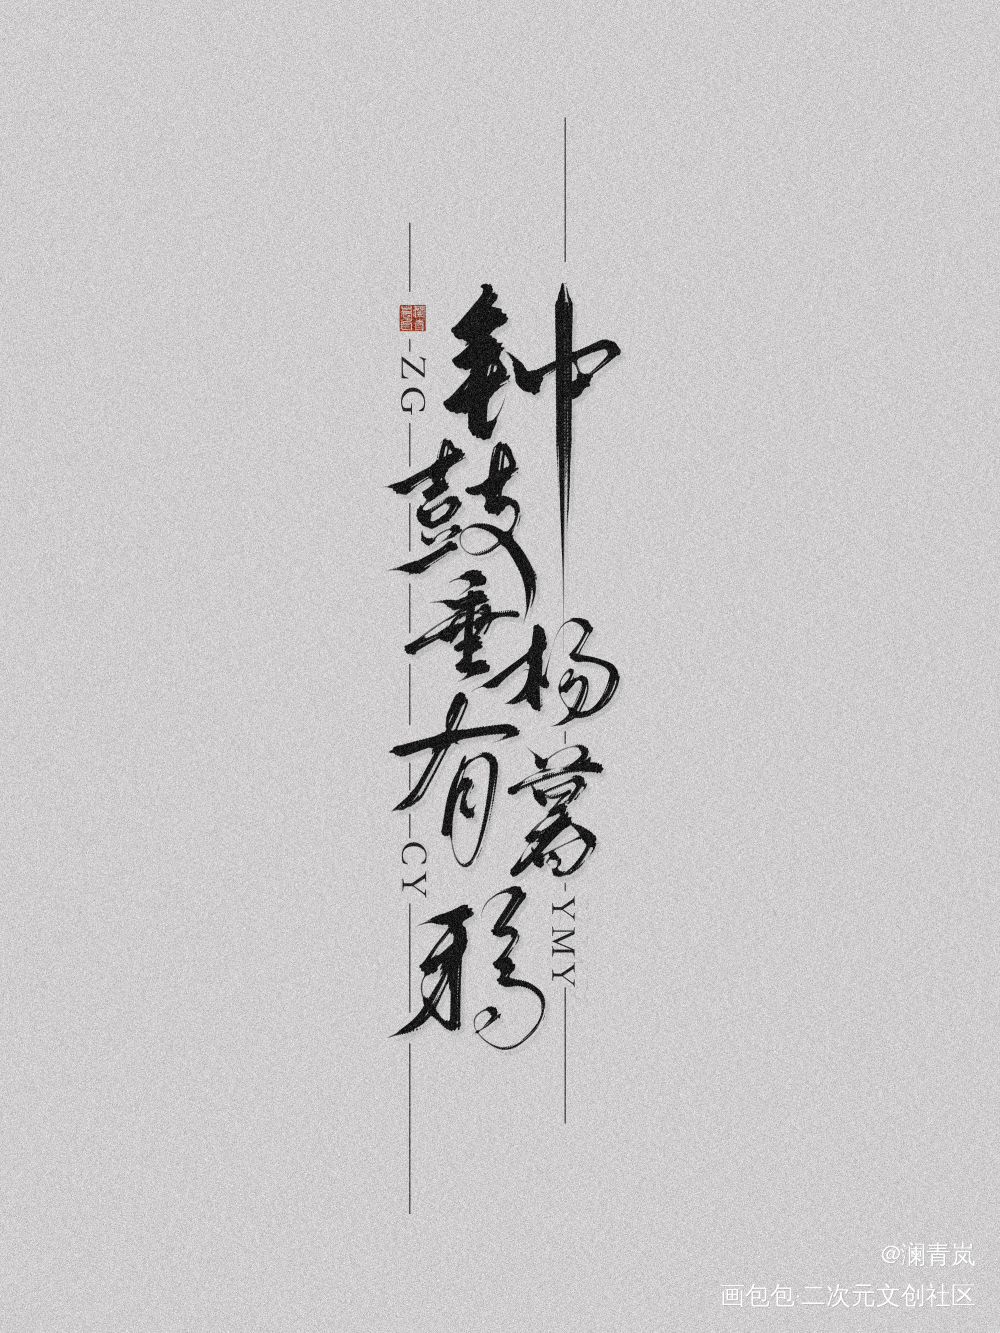 钟鼓垂杨有暮鸦
ZG
CY
YMY
@澜青岚
画包包·二次元文创社区